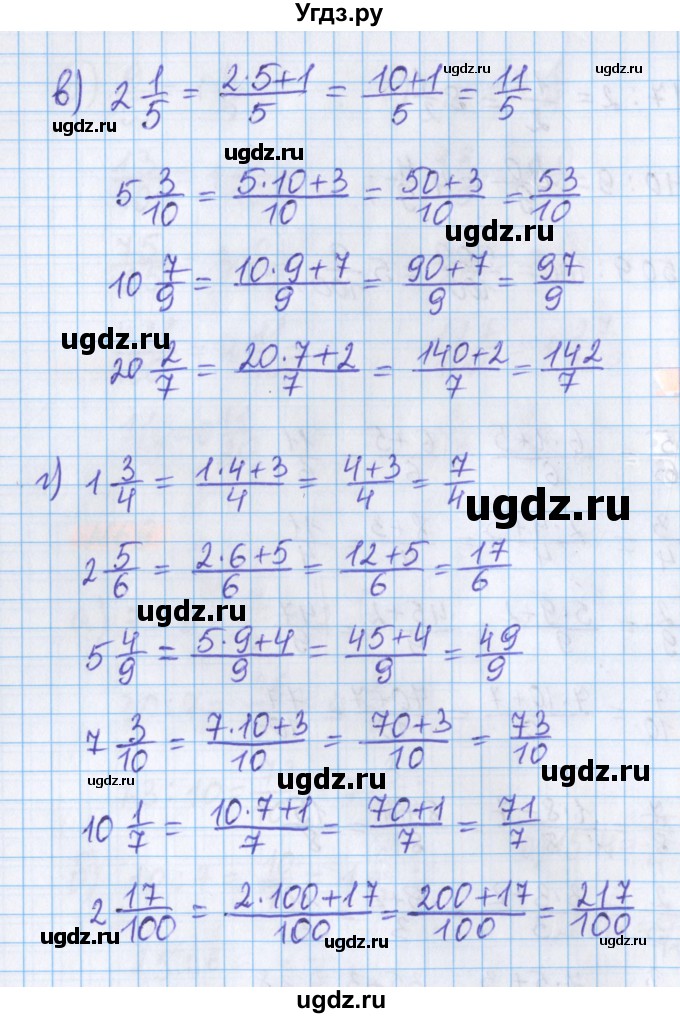 Угдз.ру
в) 2 1/5 = (2·5+1)/5 = (10+1)/5 = 11/5
ugdz.ru ugdz.ru
ugdz.ru
ugdz.ru
5 3/10 = (5·10+3)/10 = (50+3)/10 = 53/10
ugdz.ru
10 7/9 = (10·9+7)/9 = (90+7)/9 = 97/9
ugdz.ru
20 2/7 = (20·7+2)/7 = (140+2)/7 = 142/7
г) 1 3/4 = (1·4+3)/4 = (4+3)/4 = 7/4
ugdz.ru
2 5/6 = (2·6+5)/6 = (12+5)/6 = 17/6
ugdz.ru
5 4/9 = (5·9+4)/9 = (45+4)/9 = 49/9
7 3/10 = (7·10+3)/10 = (70+3)/10 = 73/10
ugdz.ru ugdz.ru ugdz.ru
10 1/7 = (10·7+1)/7 = (70+1)/7 = 71/7
2 17/100 = (2·100+17)/100 = (200+17)/100 = 217/100
ugdz.ru ugdz.ru ugdz.ru
ugdz.ru